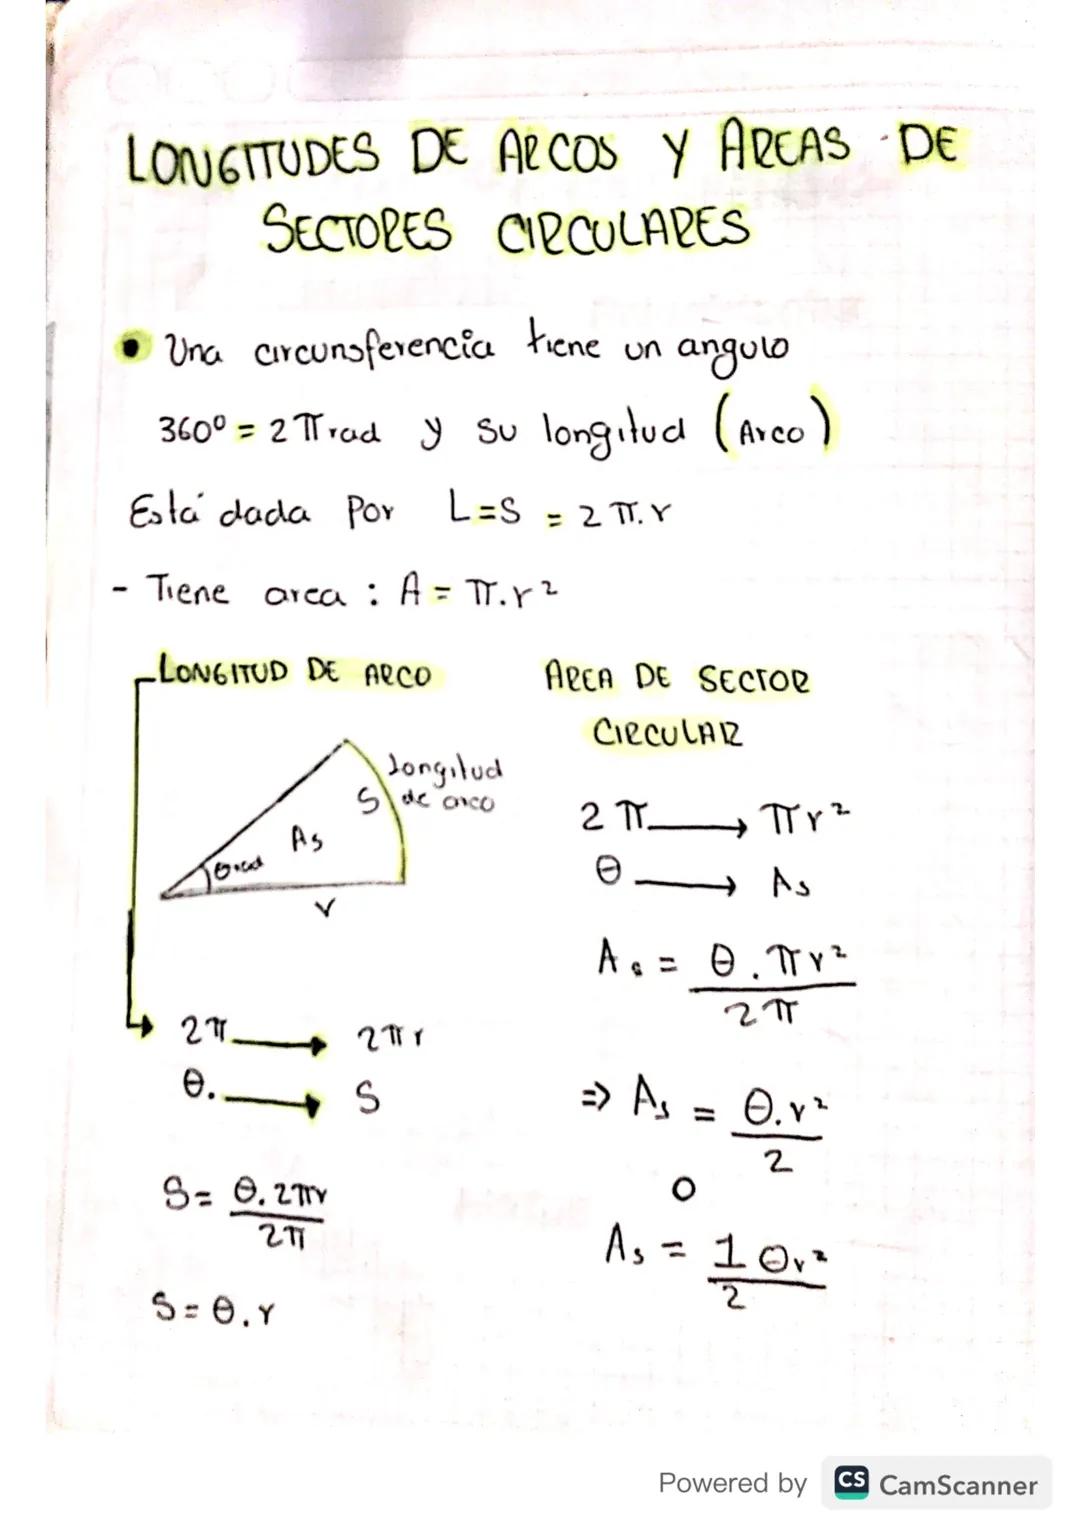 LONGITUDES DE ARCOS Y AREAS DE
SECTORES CIRCULARES
• Una circunsferencia tiene un angulo
360° = 2π rad y su longitud (Arco)
Está dada Por L=S = 2π.r
- Tiene area : A = π.r²
LONGITUD DE ARCO
longitud
S de arco
As
θrad
r
2π → 2πr
θ. → S
S= θ.2πr
2π
S=θ.r
AREA DE SECTOR
CIRCULAR
2π → πr²
θ → As
As = θ.πr²
2π
=> As = θ.r²
2
o
As = 1 θr²
2
Powered by CS CamScanner